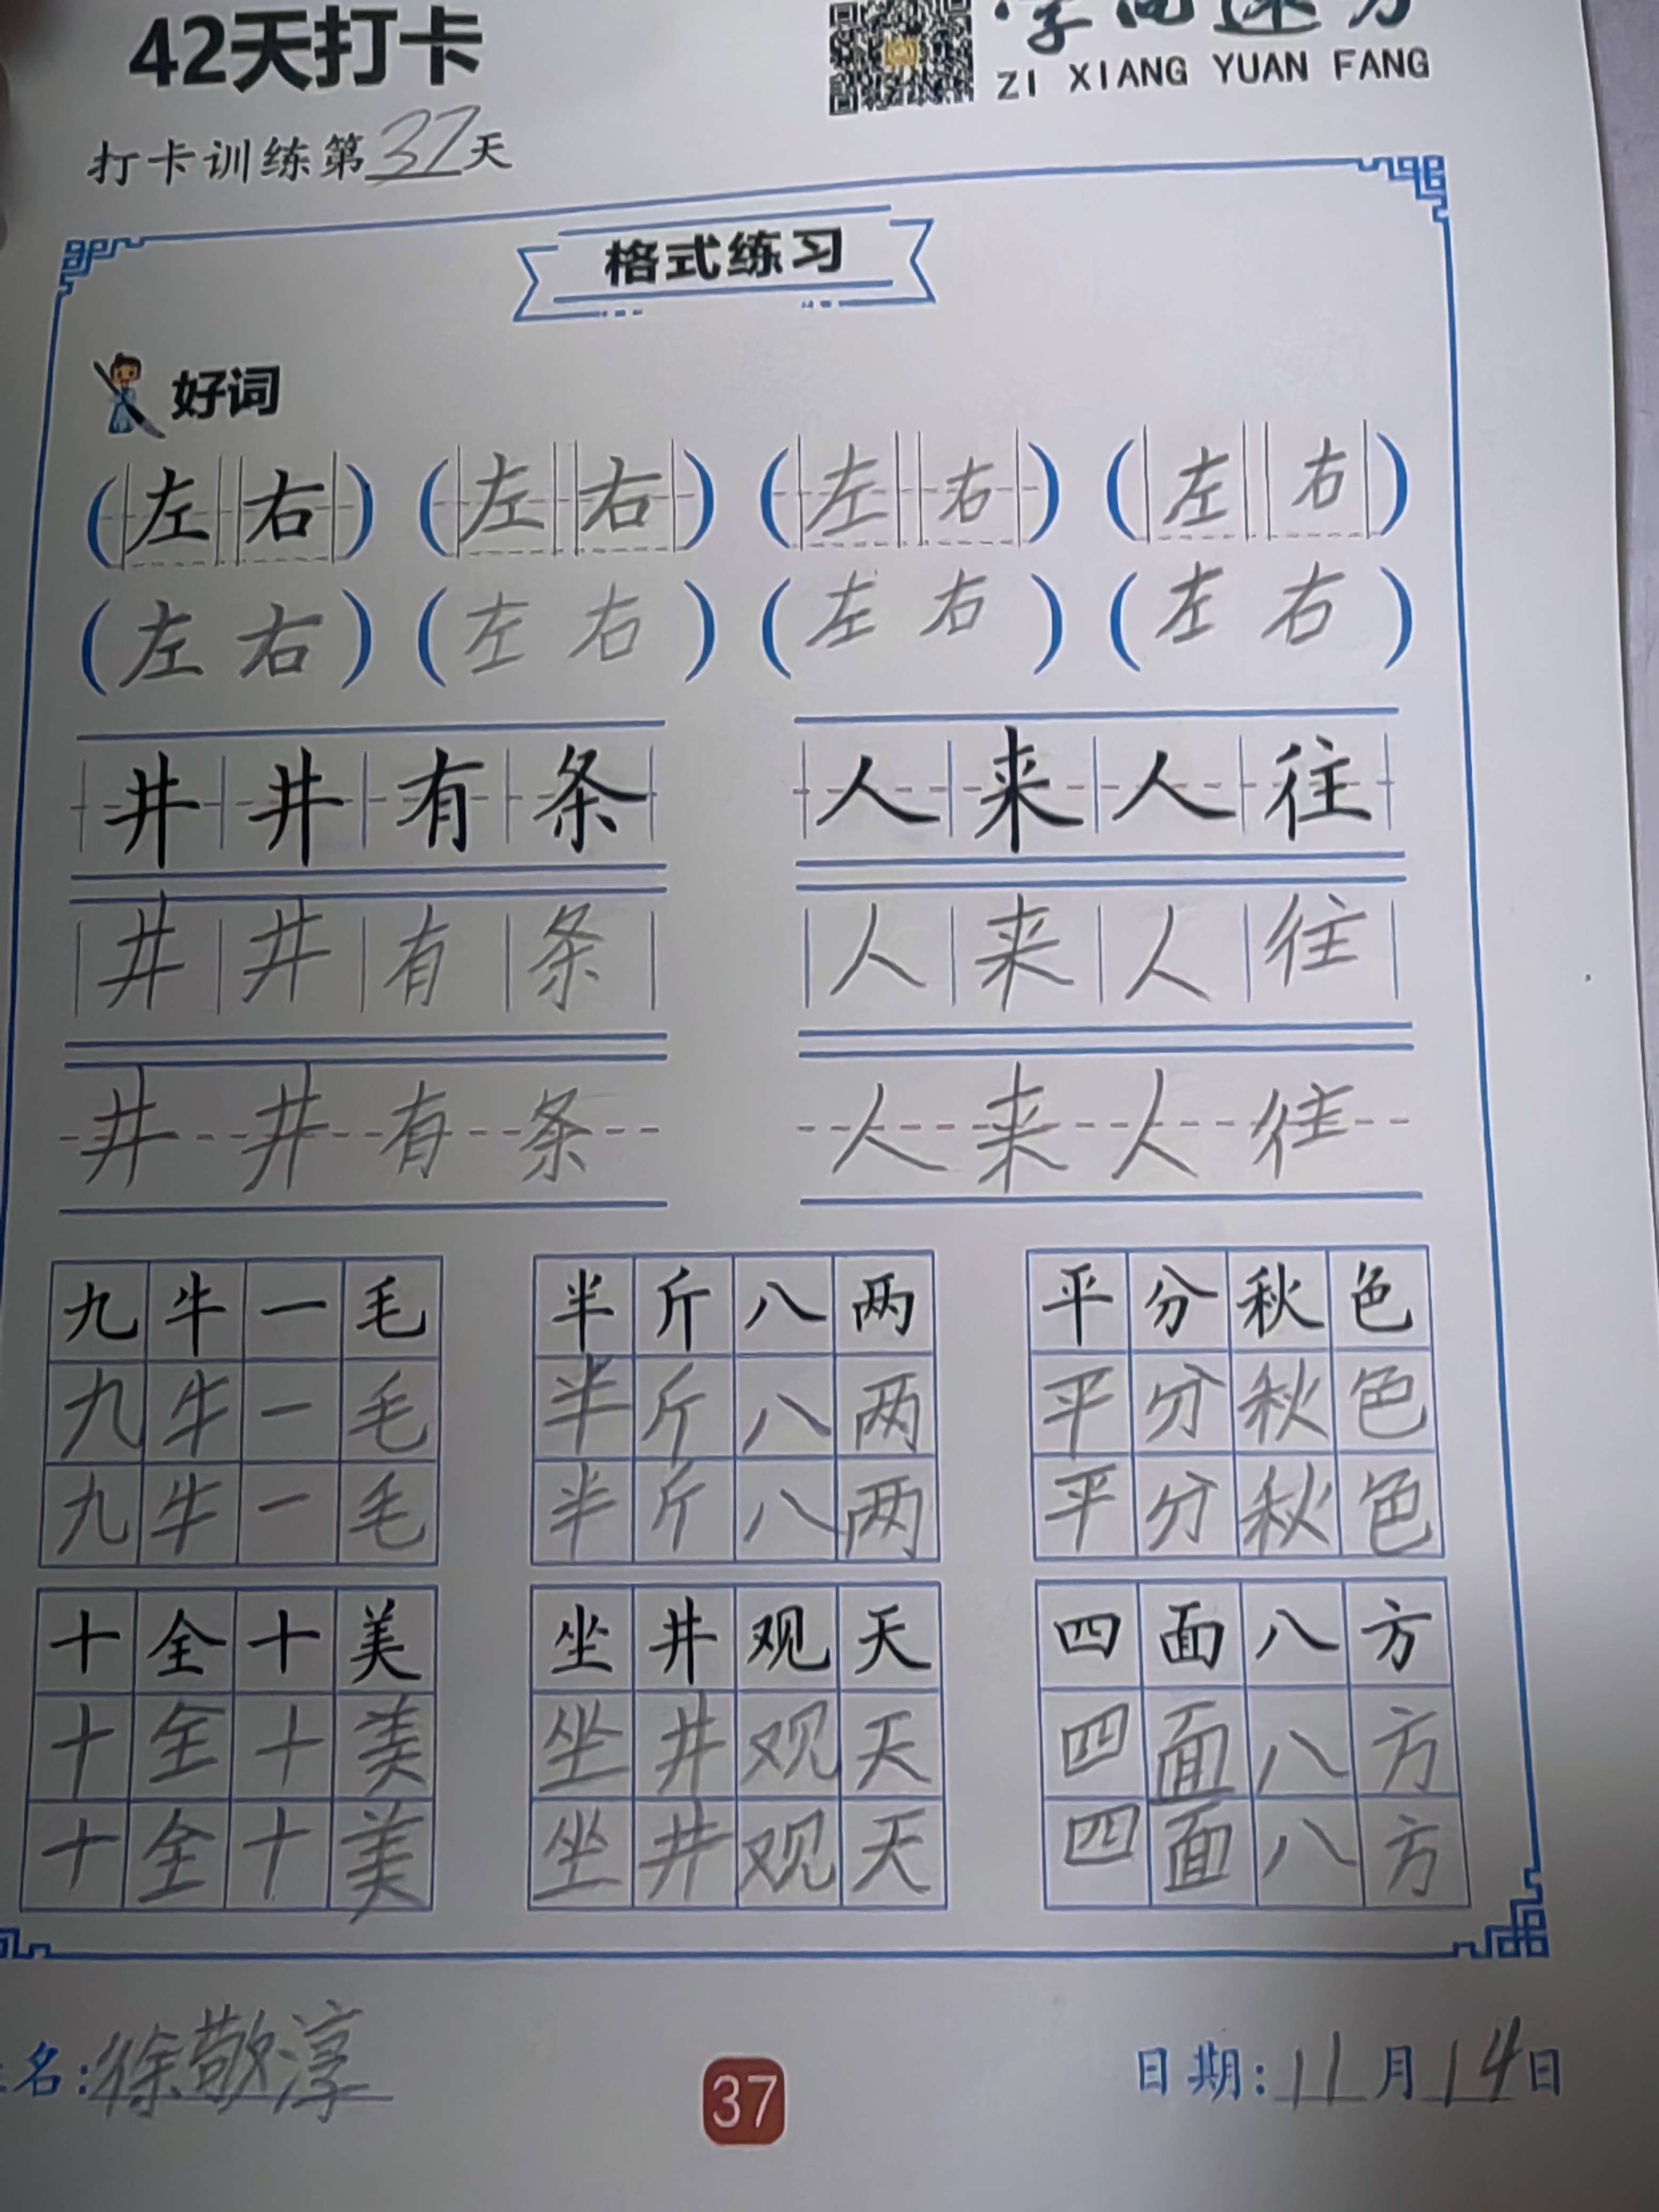 42天打卡
ZI XIANG YUAN FANG
打卡训练第37天
格式练习
好词
(左右) (左右) (左右) (左右)
(左右) (左右) (左右) (左右)
井井有条 人来人往
井井有条 人来人往
井井有条 人来人往
九牛一毛 半斤八两 平分秋色
九牛一毛 半斤八两 平分秋色
九牛一毛 半斤八两 平分秋色
十全十美 坐井观天 四面八方
十全十美 坐井观天 四面八方
十全十美 坐井观天 四面八方
名:徐敬淳 日期:11月14日
37